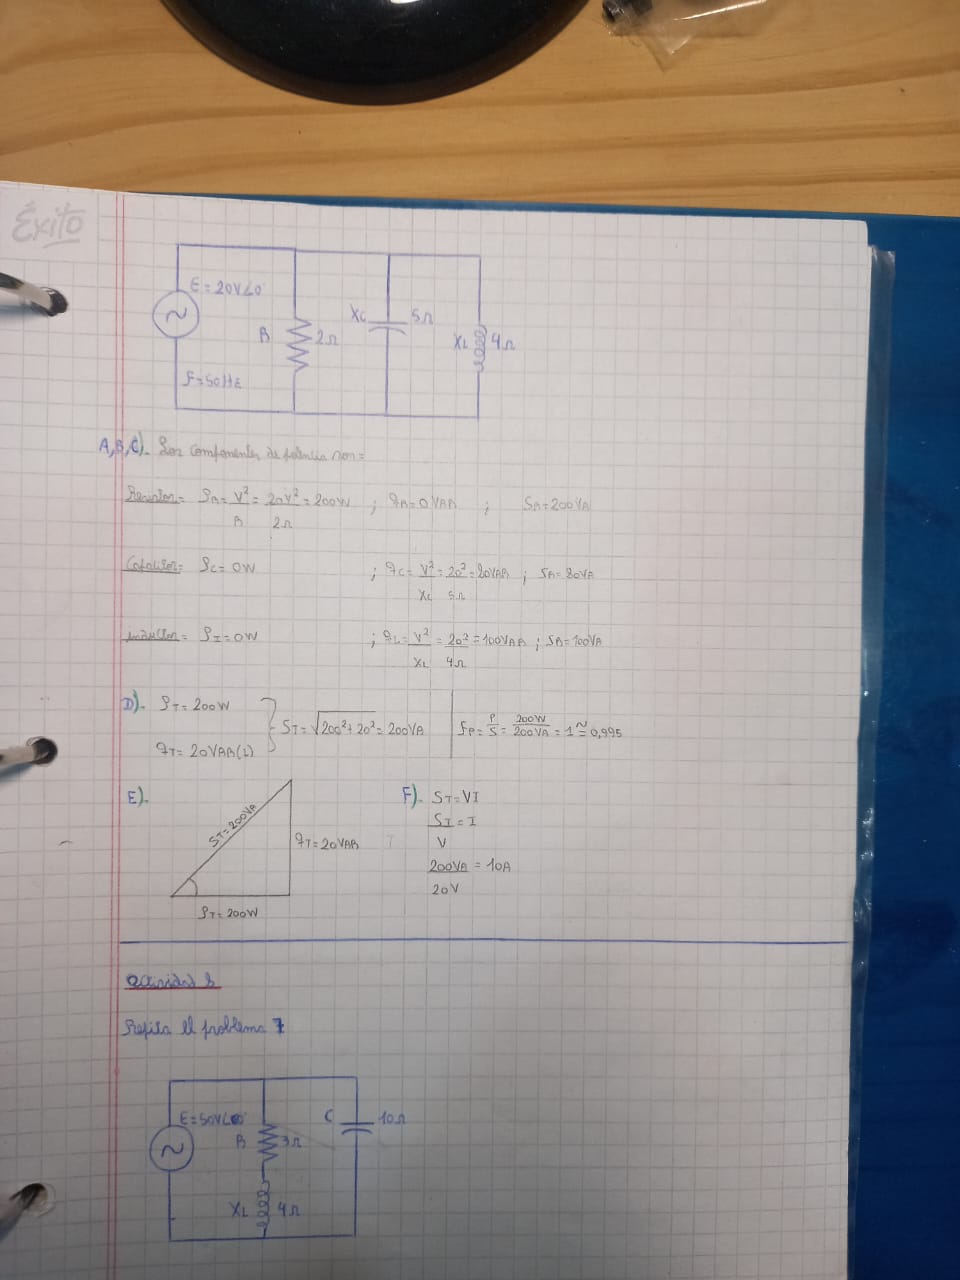 Éxito
E = 20V∠0°
XC 5Ω
R 2Ω
XL 4Ω
F=50Hz
A,B,C). Los componentes de potencia son=
Resistor= PR= V²/R = 20V²/2Ω = 200W ; qR=0VAR ; SR=200VA
Capacitor= PC=0W ; qC= V²/XC = 20²/5Ω = 80VAR ; SR=80VA
Inductor= PI=0W ; qL= V²/XL = 20²/4Ω = 100VAR ; SR=100VA
D). PT=200W
qT=20VAR(L)
ST=√200²+20²=200VA
FP= P/S = 200W/200VA = 1 ≃ 0,995
E).
ST=200VA
qT=20VAR
PT=200W
F). ST=VI
ST/V = I
200VA/20V = 10A
Actividad 8
Repita el problema 7
E=50V∠0°
C 10Ω
R 3Ω
XL 4Ω